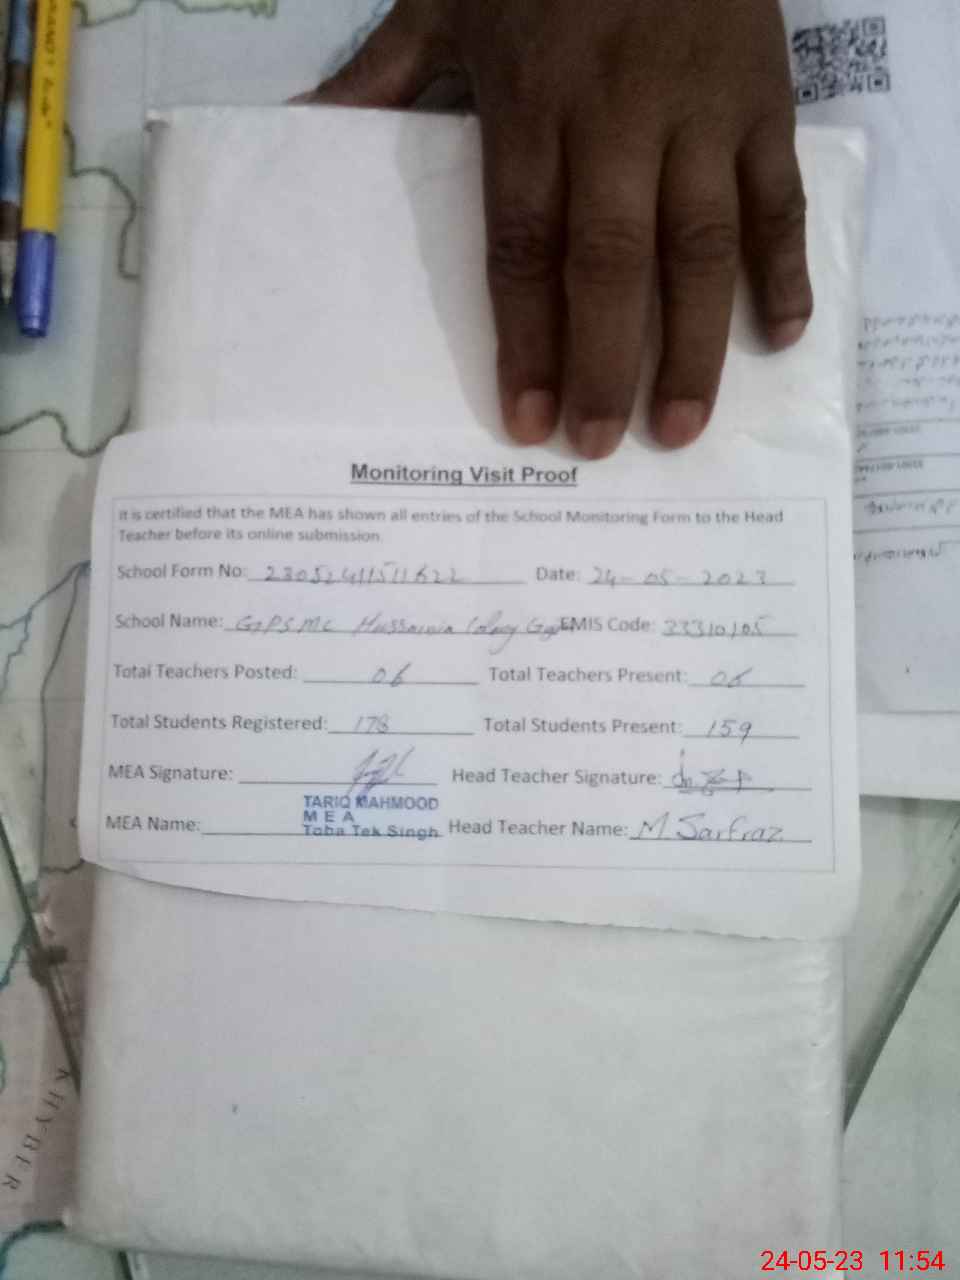 Monitoring Visit Proof
It is certified that the MEA has shown all entries of the School Monitoring Form to the Head
Teacher before its online submission.
School Form No: 23052411511622 Date: 24-05-2023
School Name: GPSMC Hussainia Colony EMIS Code: 33310105
Total Teachers Posted: 06 Total Teachers Present: 06
Total Students Registered: 178 Total Students Present: 159
MEA Signature: Head Teacher Signature:
TARIQ MAHMOOD
M E A
MEA Name: Toba Tek Singh Head Teacher Name: M Sarfraz
KHYBER
24-05-23 11:54